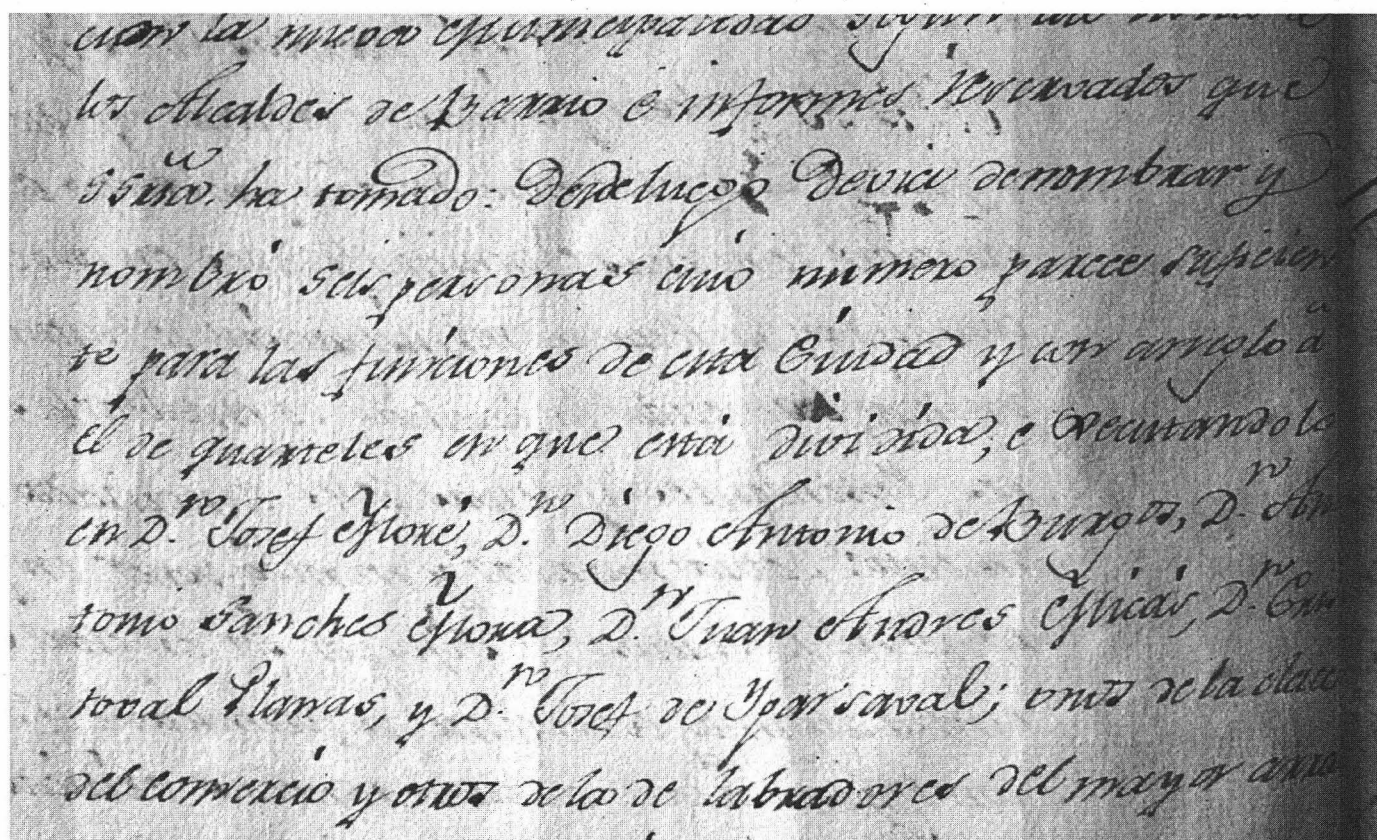 la nueva Municipalidad segun
los Alcaldes de Barrio é informes reservados que
SSria. ha tomado: Desdeluego Devia denombrar y
nombró seis personas cuio numero parece suficien
te para las funciones de esta Ciudad y con arreglo á
el de quarteles en que está dividida, e executandolo
en D.n Josef Moré, D.n Diego Antonio de Burgos, D.n An
tonio Sanches Mora, D.n Juan Andres Micás, D.n Cris
toval Planas, y D.n Josef de Yparsaval; unos de la clace
del comercio y otros dela de labradores del mayor arra